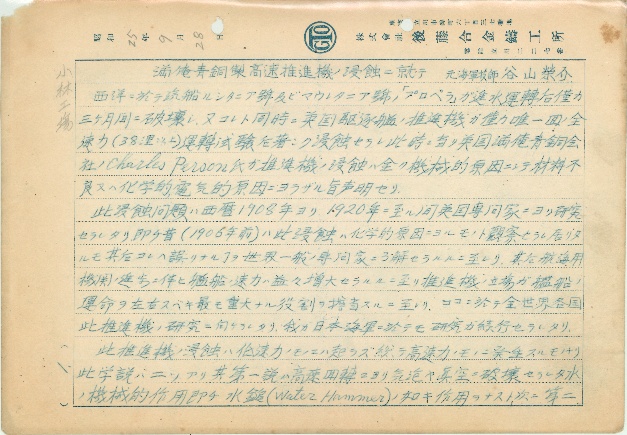 昭和25年9月28日
株式會社 後藤合金鑄工所
GTO
小林工場
満俺青銅製高速推進機ノ浸蝕ニ就テ 元海軍技師 谷山
西洋ニ於テ疾船ルシタニア號及ビマウレタニア號ノ「プロペラ」ガ進水運轉后僅カ
三ヶ月間ニ破壊シ、又コレト同時ニ英国駆逐艦ノ推進機ガ僅カ唯一回ノ全
速力(38浬以上)運轉試験后著シク浸蝕セラレ此時ニ当リ英国満俺青銅会
社ノCharles Person氏ガ推進機ノ浸蝕ハ全ク機械的原因ニシテ材料不
良又ハ化学的電気的原因ニヨラザル旨声明セリ
此浸蝕問題ハ西暦1908年ヨリ1920年ニ至ル間英国専門家ニヨリ研究
セラレタリ即チ昔(1906年前)ハ此浸蝕ハ化学的原因ニヨルモノト観察セラレ居リタ
ルモ其后コレハ誤リナルヲ世界一般ノ専門家ニ了解セラルルニ至レリ、其后航海用
機関ノ進歩ニ伴ヒ艦船ノ速力ハ益々増大セラルルニ至リ推進機ノ立場ガ艦船ノ
運命ヲ左右スベキ最モ重大ナル役割ヲ擔当スルニ至レリ、ココニ於テ全世界各国
此推進機ノ研究ニ向ケラレタリ、我ガ日本海軍ニ於テモ研究ガ続行セラレタリ、
此推進機ノ浸蝕ハ低速力ノモノニハ起ラズ総テ高速力ノモノニ発生スルモノナリ
此学説ハ二ツアリ其第一説ハ高速回轉ニヨリ気泡ヤ真空ニ破壊セラレタ水
ノ機械的作用即チ水鎚(Water Hammer)ノ如キ作用ヲナスト云ヒ第二